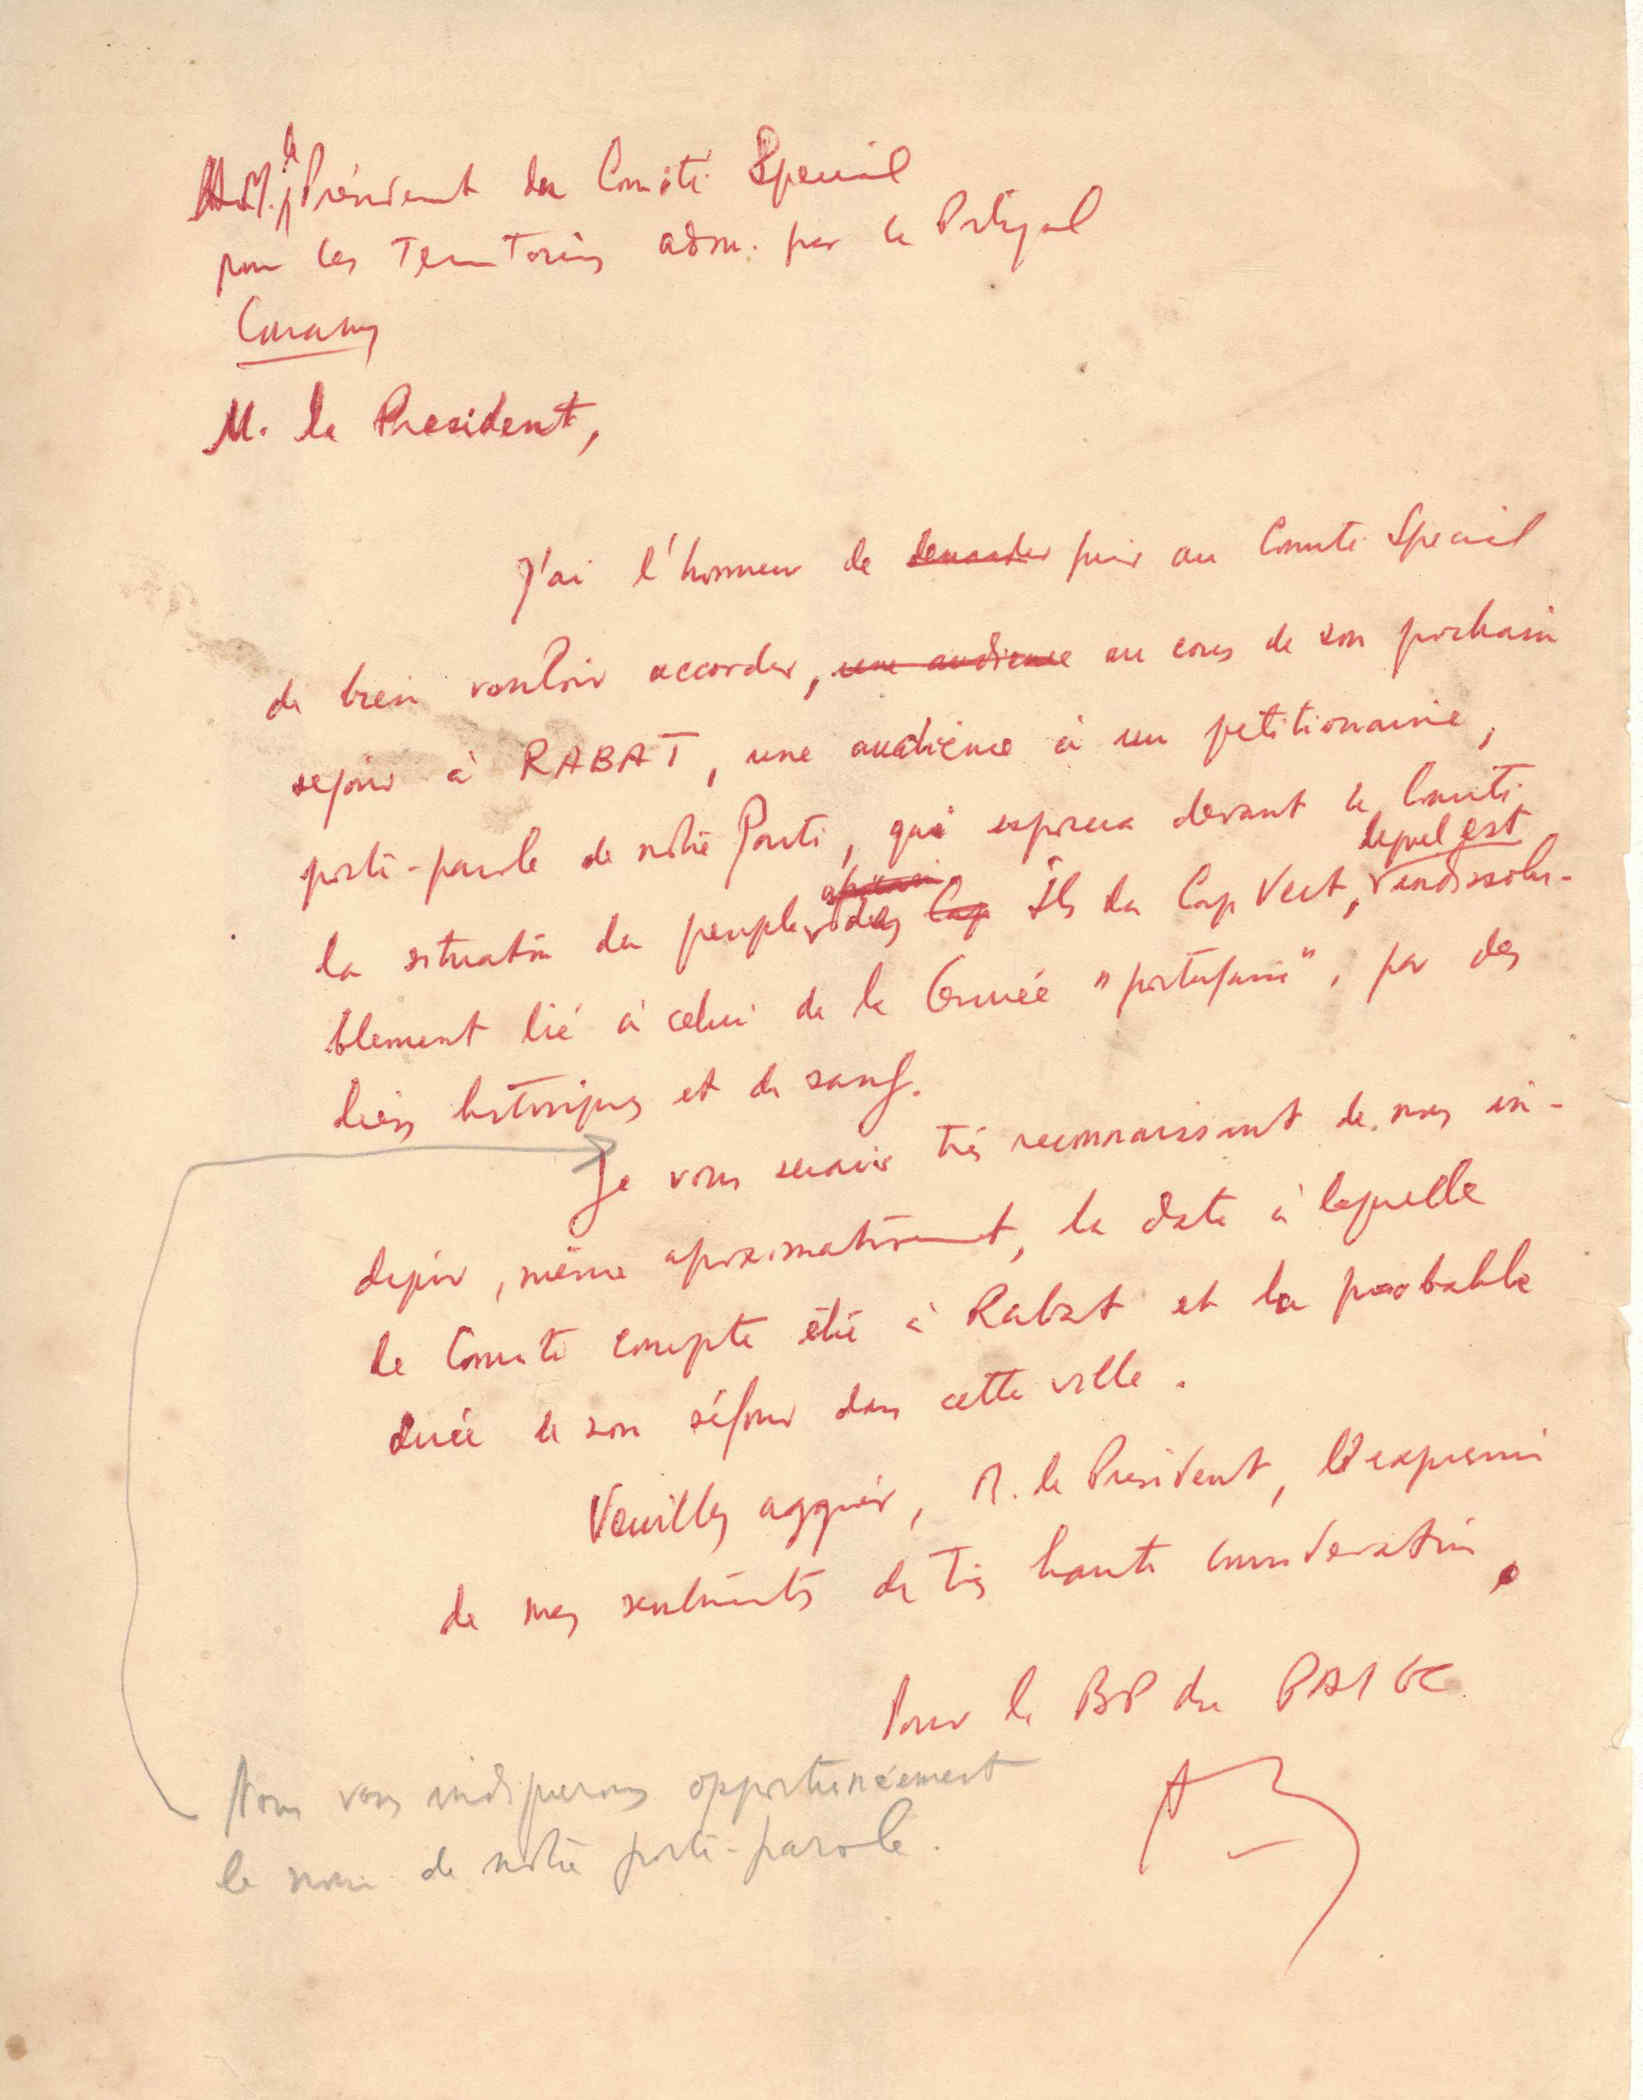 M. le Président du Comité Special
pour les Territoires adm. par le Portugal
M. le President,
J'ai l'honneur de demander prier au Comité Special
de bien vouloir accorder, une audience au cours de son prochain
sejour à RABAT, une audience à un petitionnaire,
porte-parole de notre Parti, qui exposera devant le Comité
la situation du peuple des Cap Iles du Cap Vert, lequel est indissolu-
blement lié à celui de la Guinée "portugaise", par des
liens historiques et de sang.
Je vous serais très reconnaissant de nous in-
diquer, même aproximativement, la date à laquelle
le Comité compte être à Rabat et la probable
durée de son séjour dans cette ville.
Veuillez aggréer, M. le Président, l'expression
de mes sentiments de très haute consideration.
Pour le BP du PAIGC
Nous vous indiquerons opportunément
le nom de notre porte-parole.